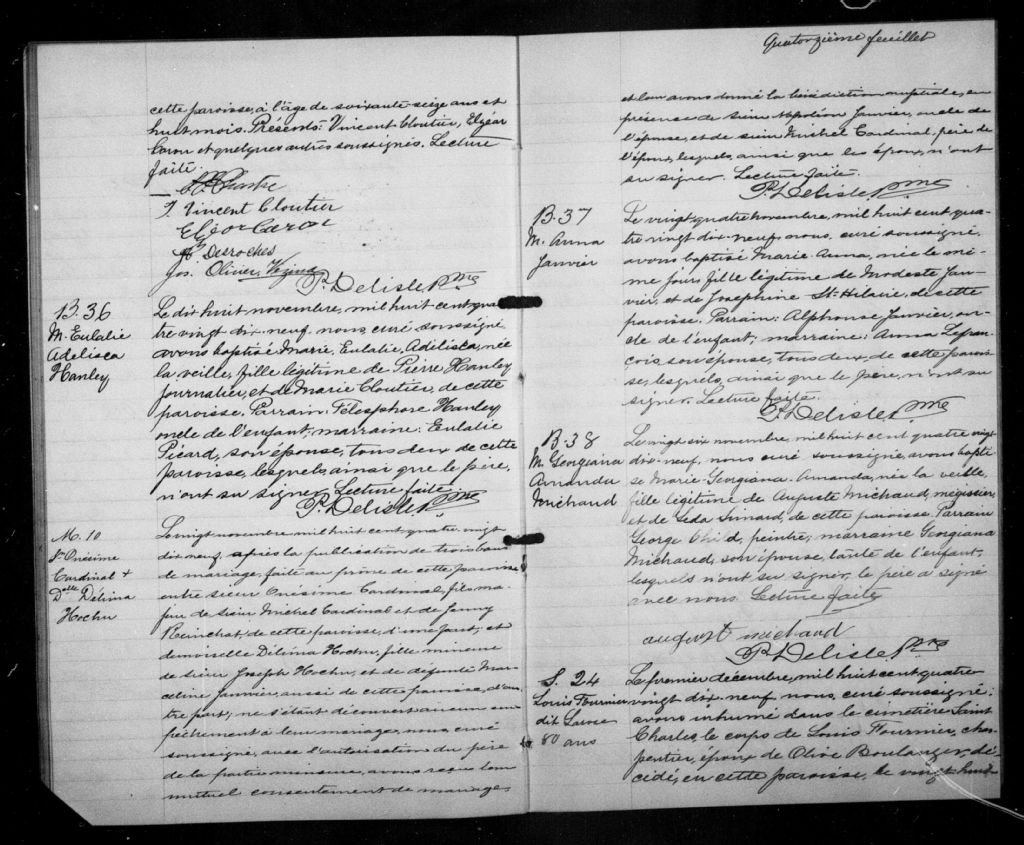 cette paroisse, à l'âge de soixante-seize ans et
huit mois. Présents: Vincent Cloutier, Elzéar
Caron et quelques autres soussignés. Lecture
faite.
J. Vincent Cloutier
Elzéar Caron
Desroches
Jos. Olivier, Vézina
P. Delisle Ptre
B. 36
M. Eulalie
Adélisca
Hanley
Le dix huit novembre, mil huit cent qua-
tre vingt dix-neuf, nous, curé soussigné
avons baptisé Marie, Eulalie, Adélisca, née
la veille, fille légitime de Pierre Hanley
journalier, et de Marie Cloutier, de cette
paroisse. Parrain: Télesphore Hanley
oncle de l'enfant; marraine: Eulalie
Picard, son épouse, tous deux de cette
paroisse, lesquels, ainsi que le père,
n'ont su signer. Lecture faite.
P. Delisle Ptre
M. 10
Sr Onésime
Cardinal +
Dlle Délima
Hochu
Le vingt novembre mil huit cent quatre vingt
dix neuf, après la publication de trois bans
de mariage, faite au prône de cette paroisse
entre sieur Onésime Cardinal, fils ma-
jeur de sieur Michel Cardinal et de
de cette paroisse, d'une part; et
demoiselle Délima Hochu, fille mineure
de sieur Joseph Hochu, et de défunte Mar-
celine Janvier, aussi de cette paroisse, d'au-
tre part; ne s'étant découvert aucun em-
pêchement à leur mariage, nous, curé
soussigné, avec l'autorisation du père
de la partie mineure, avons reçu leur
mutuel consentement de mariage
Quatorzième feuillet
et leur avons donné la bénédiction nuptiale, en
présence de sieur Napoléon Janvier, oncle de
l'épouse, et de sieur Michel Cardinal, père de
l'époux, lesquels, ainsi que les époux, n'ont
su signer. Lecture faite.
P. Delisle Ptre
B. 37
M. Anna
Janvier
Le vingt quatre novembre, mil huit cent qua-
tre vingt dix-neuf, nous, curé soussigné,
avons baptisé Marie Anna, née le mê-
me jour, fille légitime de Modeste Jan-
vier, et de Josephine St-Hilaire, de cette
paroisse. Parrain: Alphonse Janvier, on-
cle de l'enfant; marraine: Anna Lefran-
çois, son épouse, tous deux, de cette parois-
se, lesquels, ainsi que le père, n'ont su
signer. Lecture faite.
P. Delisle Ptre
B. 38
M. Georgiana
Amanda
Michaud
Le vingt six novembre, mil huit cent quatre vingt
dix-neuf, nous curé soussigné, avons bapti-
sé Marie-Georgiana-Amanda, née la veille,
fille légitime de Auguste Michaud, mégissier
et de Léda Simard, de cette paroisse. Parrain
George peintre; marraine Georgiana
Michaud, son épouse, tante de l'enfant,
lesquels n'ont su signer, le père a signé
avec nous. Lecture faite
august michaud
P. Delisle Ptre
S. 24
Louis Fournier
dit
80 ans
Le premier décembre, mil huit cent quatre
vingt dix-neuf nous, curé soussigné,
avons inhumé dans le cimetière Saint
Charles, le corps de Louis Fournier, char-
pentier, époux de Olive Boulanger, dé-
cédé, en cette paroisse, le vingt huit